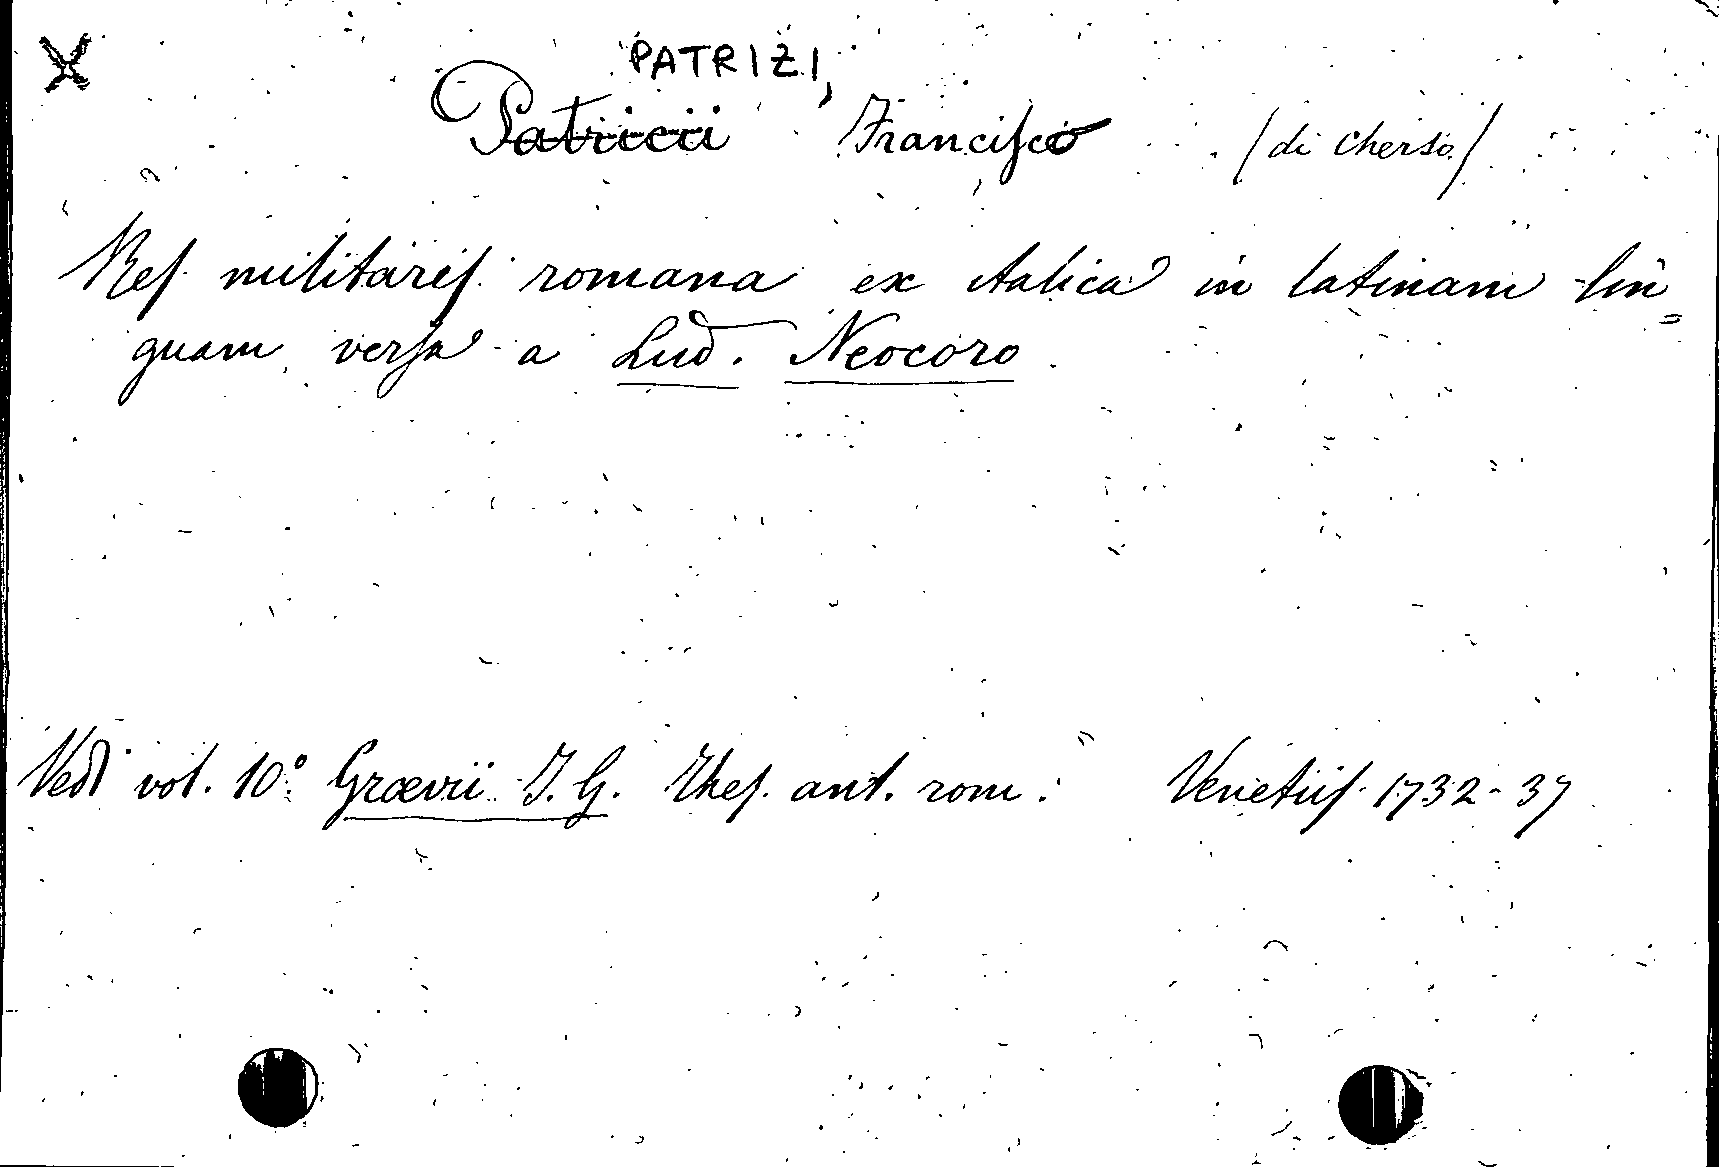 X
PATRIZI,
Patricii Francisco (di Cherso)
Res militaris romana ex italica in latinam lin=
guam versa a Lud. Neocoro
Vedi vol. 10º Grævii J. G. Thes. ant. rom. Venetiis 1732-37